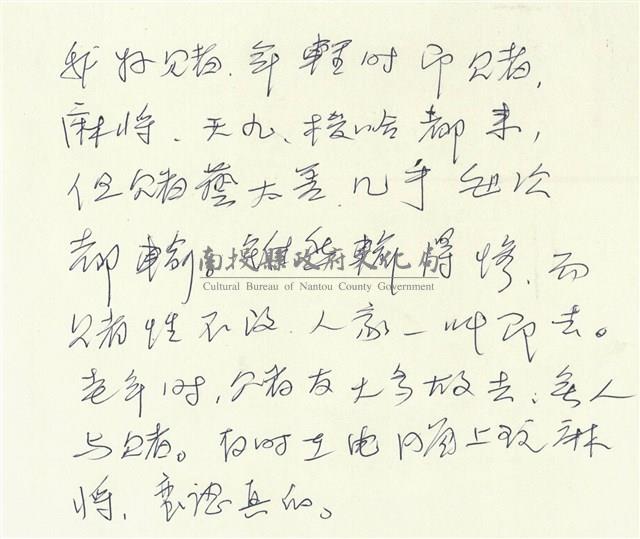 我好賭,年輕时即賭,
麻将、天九、梭哈都來,
但賭藝太差,几乎每次
都輸。雖然輸得慘,而
南投縣政府文化局
Cultural Bureau of Nantou County Government
賭性不改,人家一叫即去。
老年时,賭友大多故去,無人
与賭。有时在电脑上玩麻
将,蛮認真的。